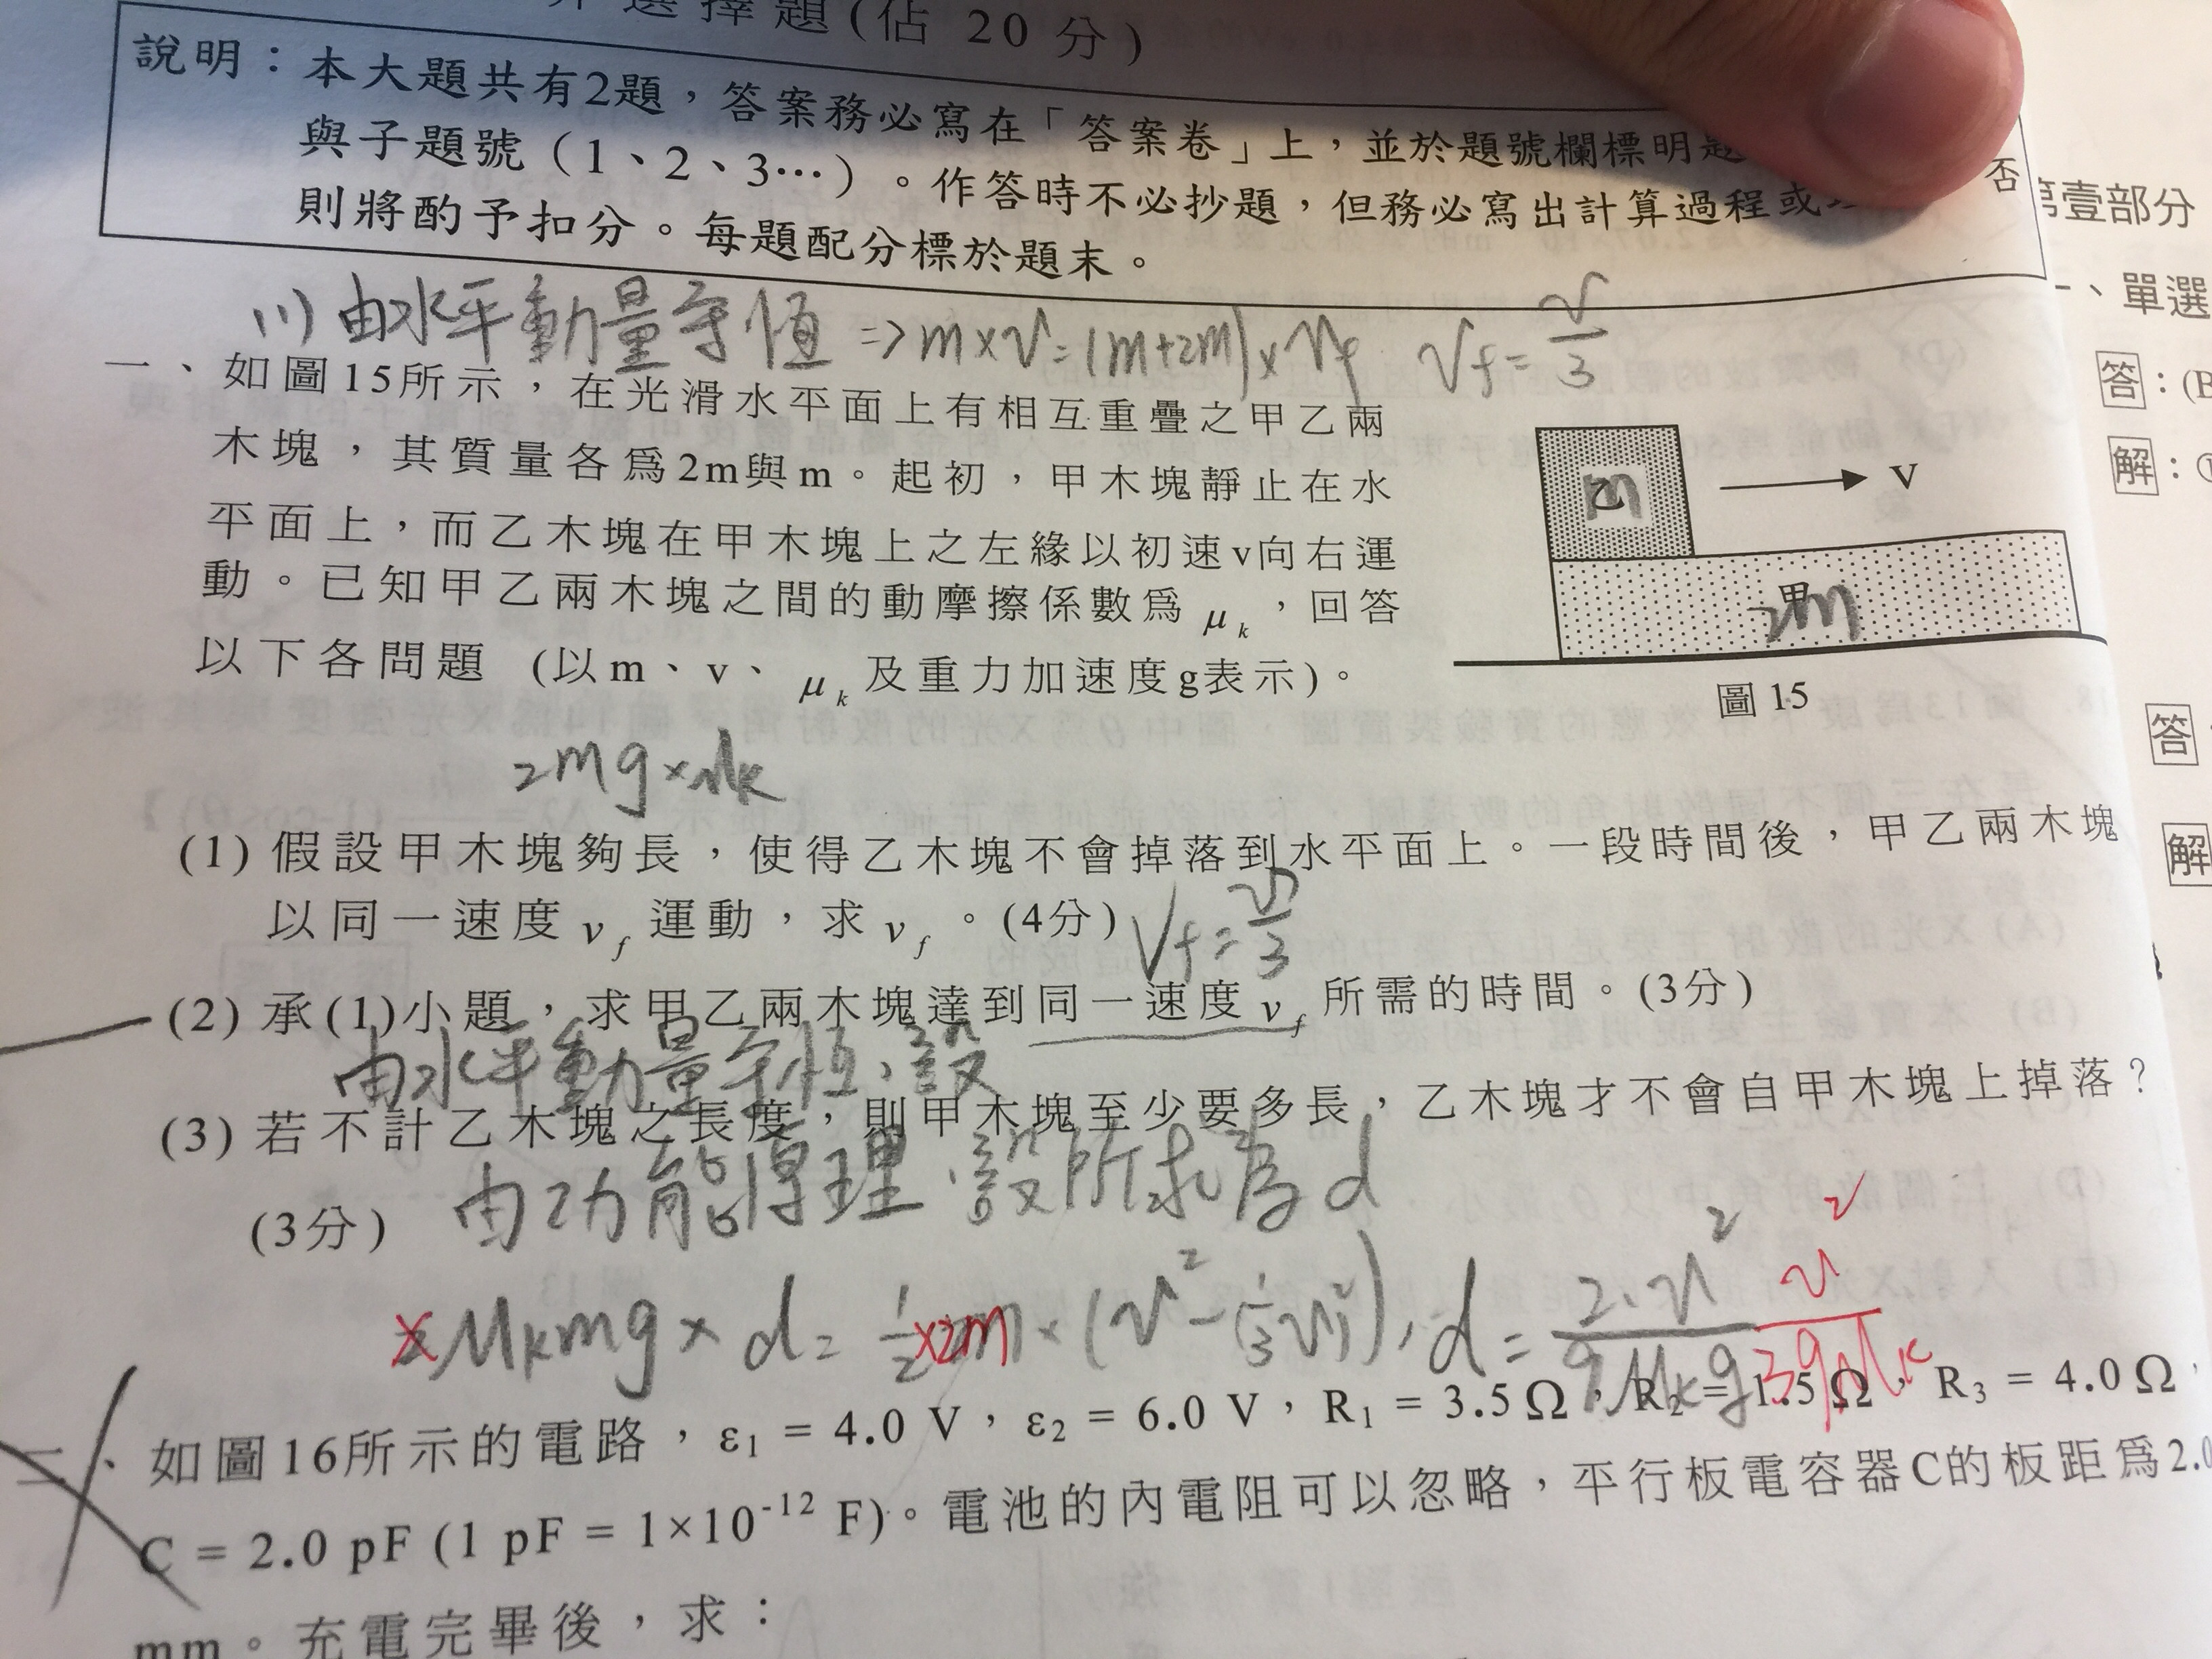 選擇題(佔 20 分)
說明：本大題共有2題，答案務必寫在「答案卷」上，並於題號欄標明題
與子題號（1、2、3…）。作答時不必抄題，但務必寫出計算過程或
否
則將酌予扣分。每題配分標於題末。
第壹部分
一、單選
答：(B
解：
(1) 由水平動量守恆 => m×v=(m+2m)×Vf Vf=v/3
一、如圖15所示，在光滑水平面上有相互重疊之甲乙兩
木塊，其質量各為2m與m。起初，甲木塊靜止在水
平面上，而乙木塊在甲木塊上之左緣以初速v向右運
動。已知甲乙兩木塊之間的動摩擦係數為 μk，回答
以下各問題 (以m、v、μk及重力加速度g表示)。
乙 m
v
甲 2m
圖 15
答
解
2mg×μk
(1) 假設甲木塊夠長，使得乙木塊不會掉落到水平面上。一段時間後，甲乙兩木塊
以同一速度 vf 運動，求 vf。(4分) Vf=v/3
(2) 承(1)小題，求甲乙兩木塊達到同一速度 vf 所需的時間。(3分)
由水平動量守恆，設
(3) 若不計乙木塊之長度，則甲木塊至少要多長，乙木塊才不會自甲木塊上掉落？
(3分) 由功能原理 設所求為 d
μkmg × d = 1/2 ×2m × (v²-(1/3v)²), d = 2·v²/9μkg v²/3gμk
二、如圖16所示的電路，ε1 = 4.0 V，ε2 = 6.0 V，R1 = 3.5 Ω，R2 = 1.5 Ω，R3 = 4.0 Ω，
C = 2.0 pF (1 pF = 1×10⁻¹² F)。電池的內電阻可以忽略，平行板電容器C的板距為2.0
mm。充電完畢後，求：